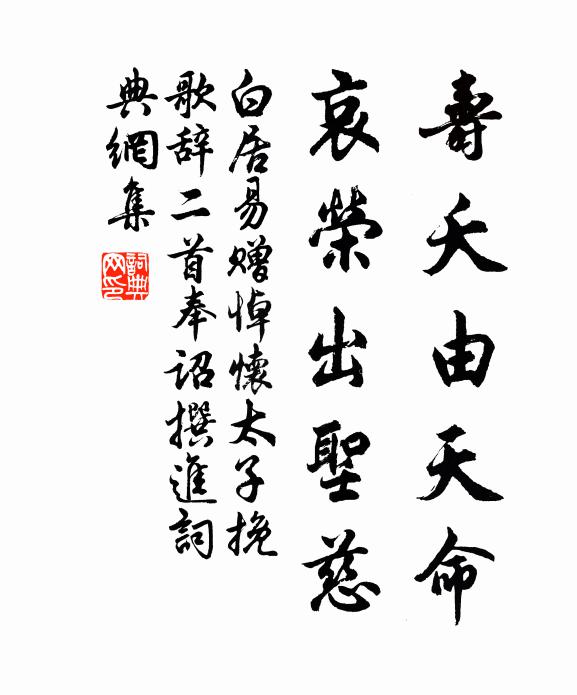 壽夭由天命
哀榮出聖慈
白居易贈悼懷太子挽
歌辞二首奉诏撰進詞
典網集
詞典
网印